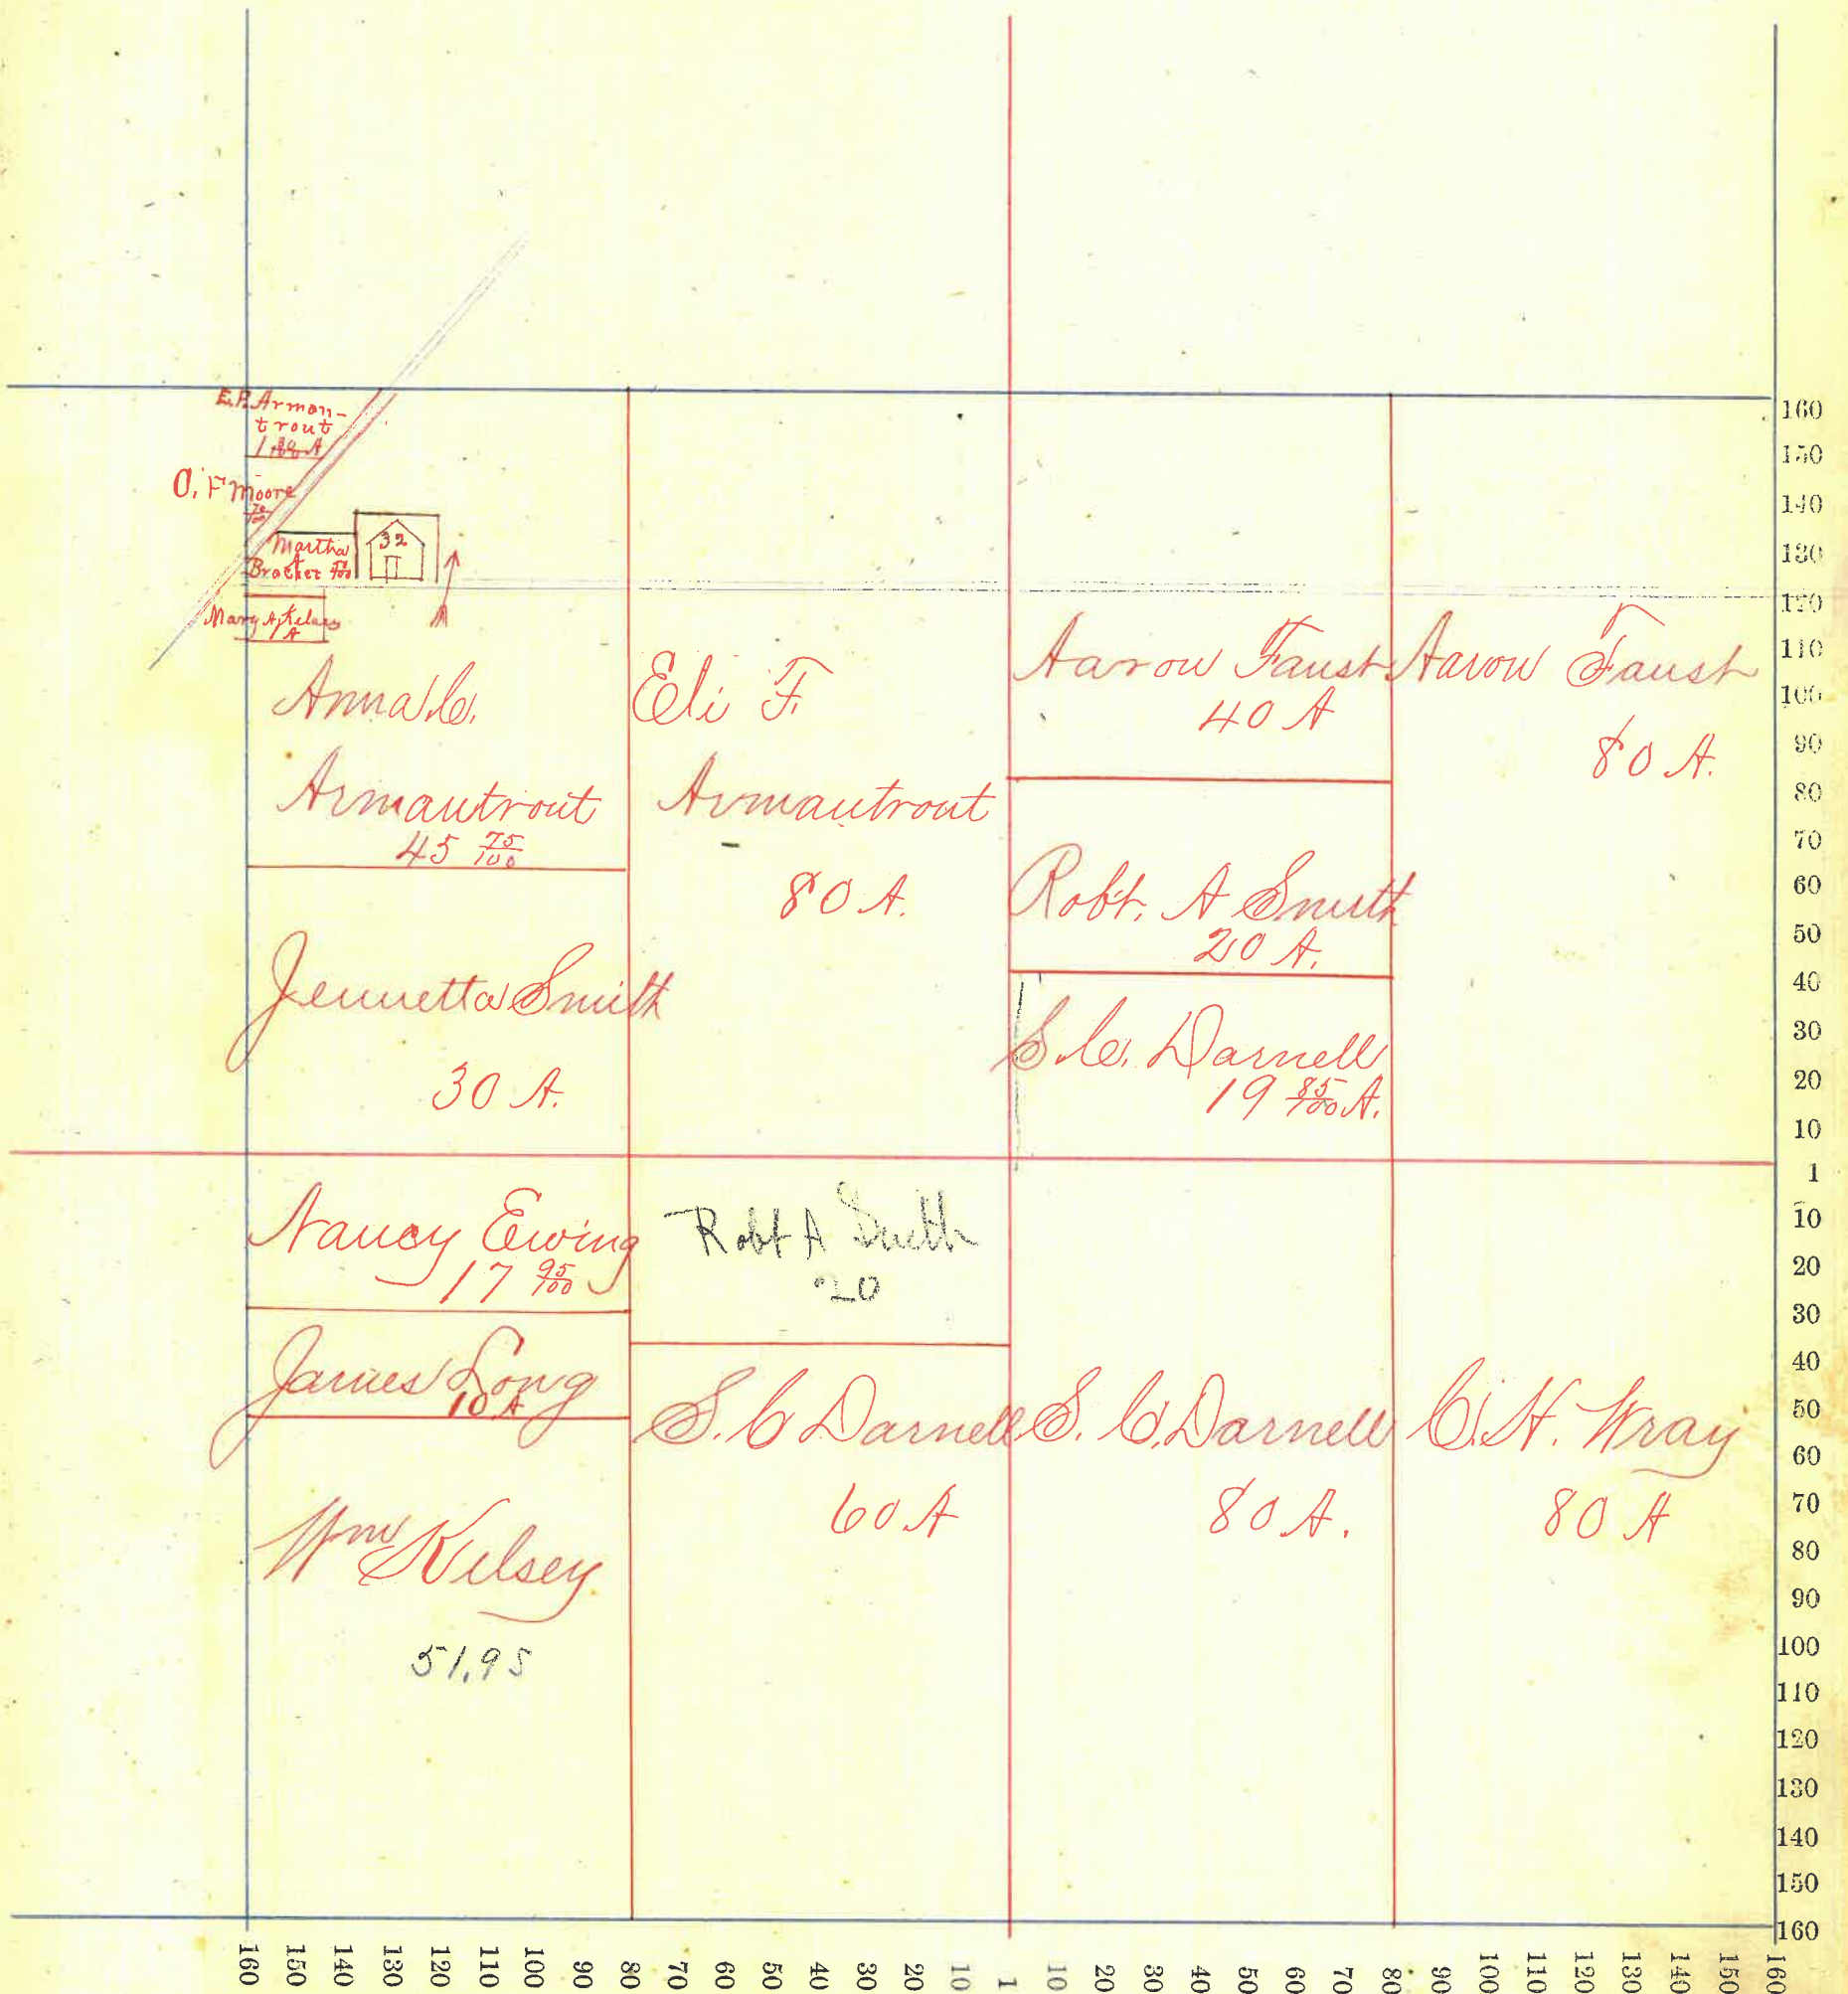 E.P. Armon-
trout
O. F Moore
70/100
Martha
Bracket
32
Mary A. Kelsey
1 A
Anna C.
Armautrout
45 75/100
Eli F.
Armautrout
80 A.
Aaron Faust
40 A
Aaron Faust
80 A.
Robt. A Smith
20 A.
Jennetta Smith
30 A.
S. C. Darnell
19 85/100 A.
Nancy Ewing
17 95/100
Robt A Smith
20
James Long
10 A
S. C Darnell
60 A
S. C. Darnell
80 A.
C. H. Wray
80 A
Wm Kelsey
51.95
160
150
140
130
120
110
100
90
80
70
60
50
40
30
20
10
1
10
20
30
40
50
60
70
80
90
100
110
120
130
140
150
160
160 150 140 130 120 110 100 90 80 70 60 50 40 30 20 10 1 10 20 30 40 50 60 70 80 90 100 110 120 130 140 150 160